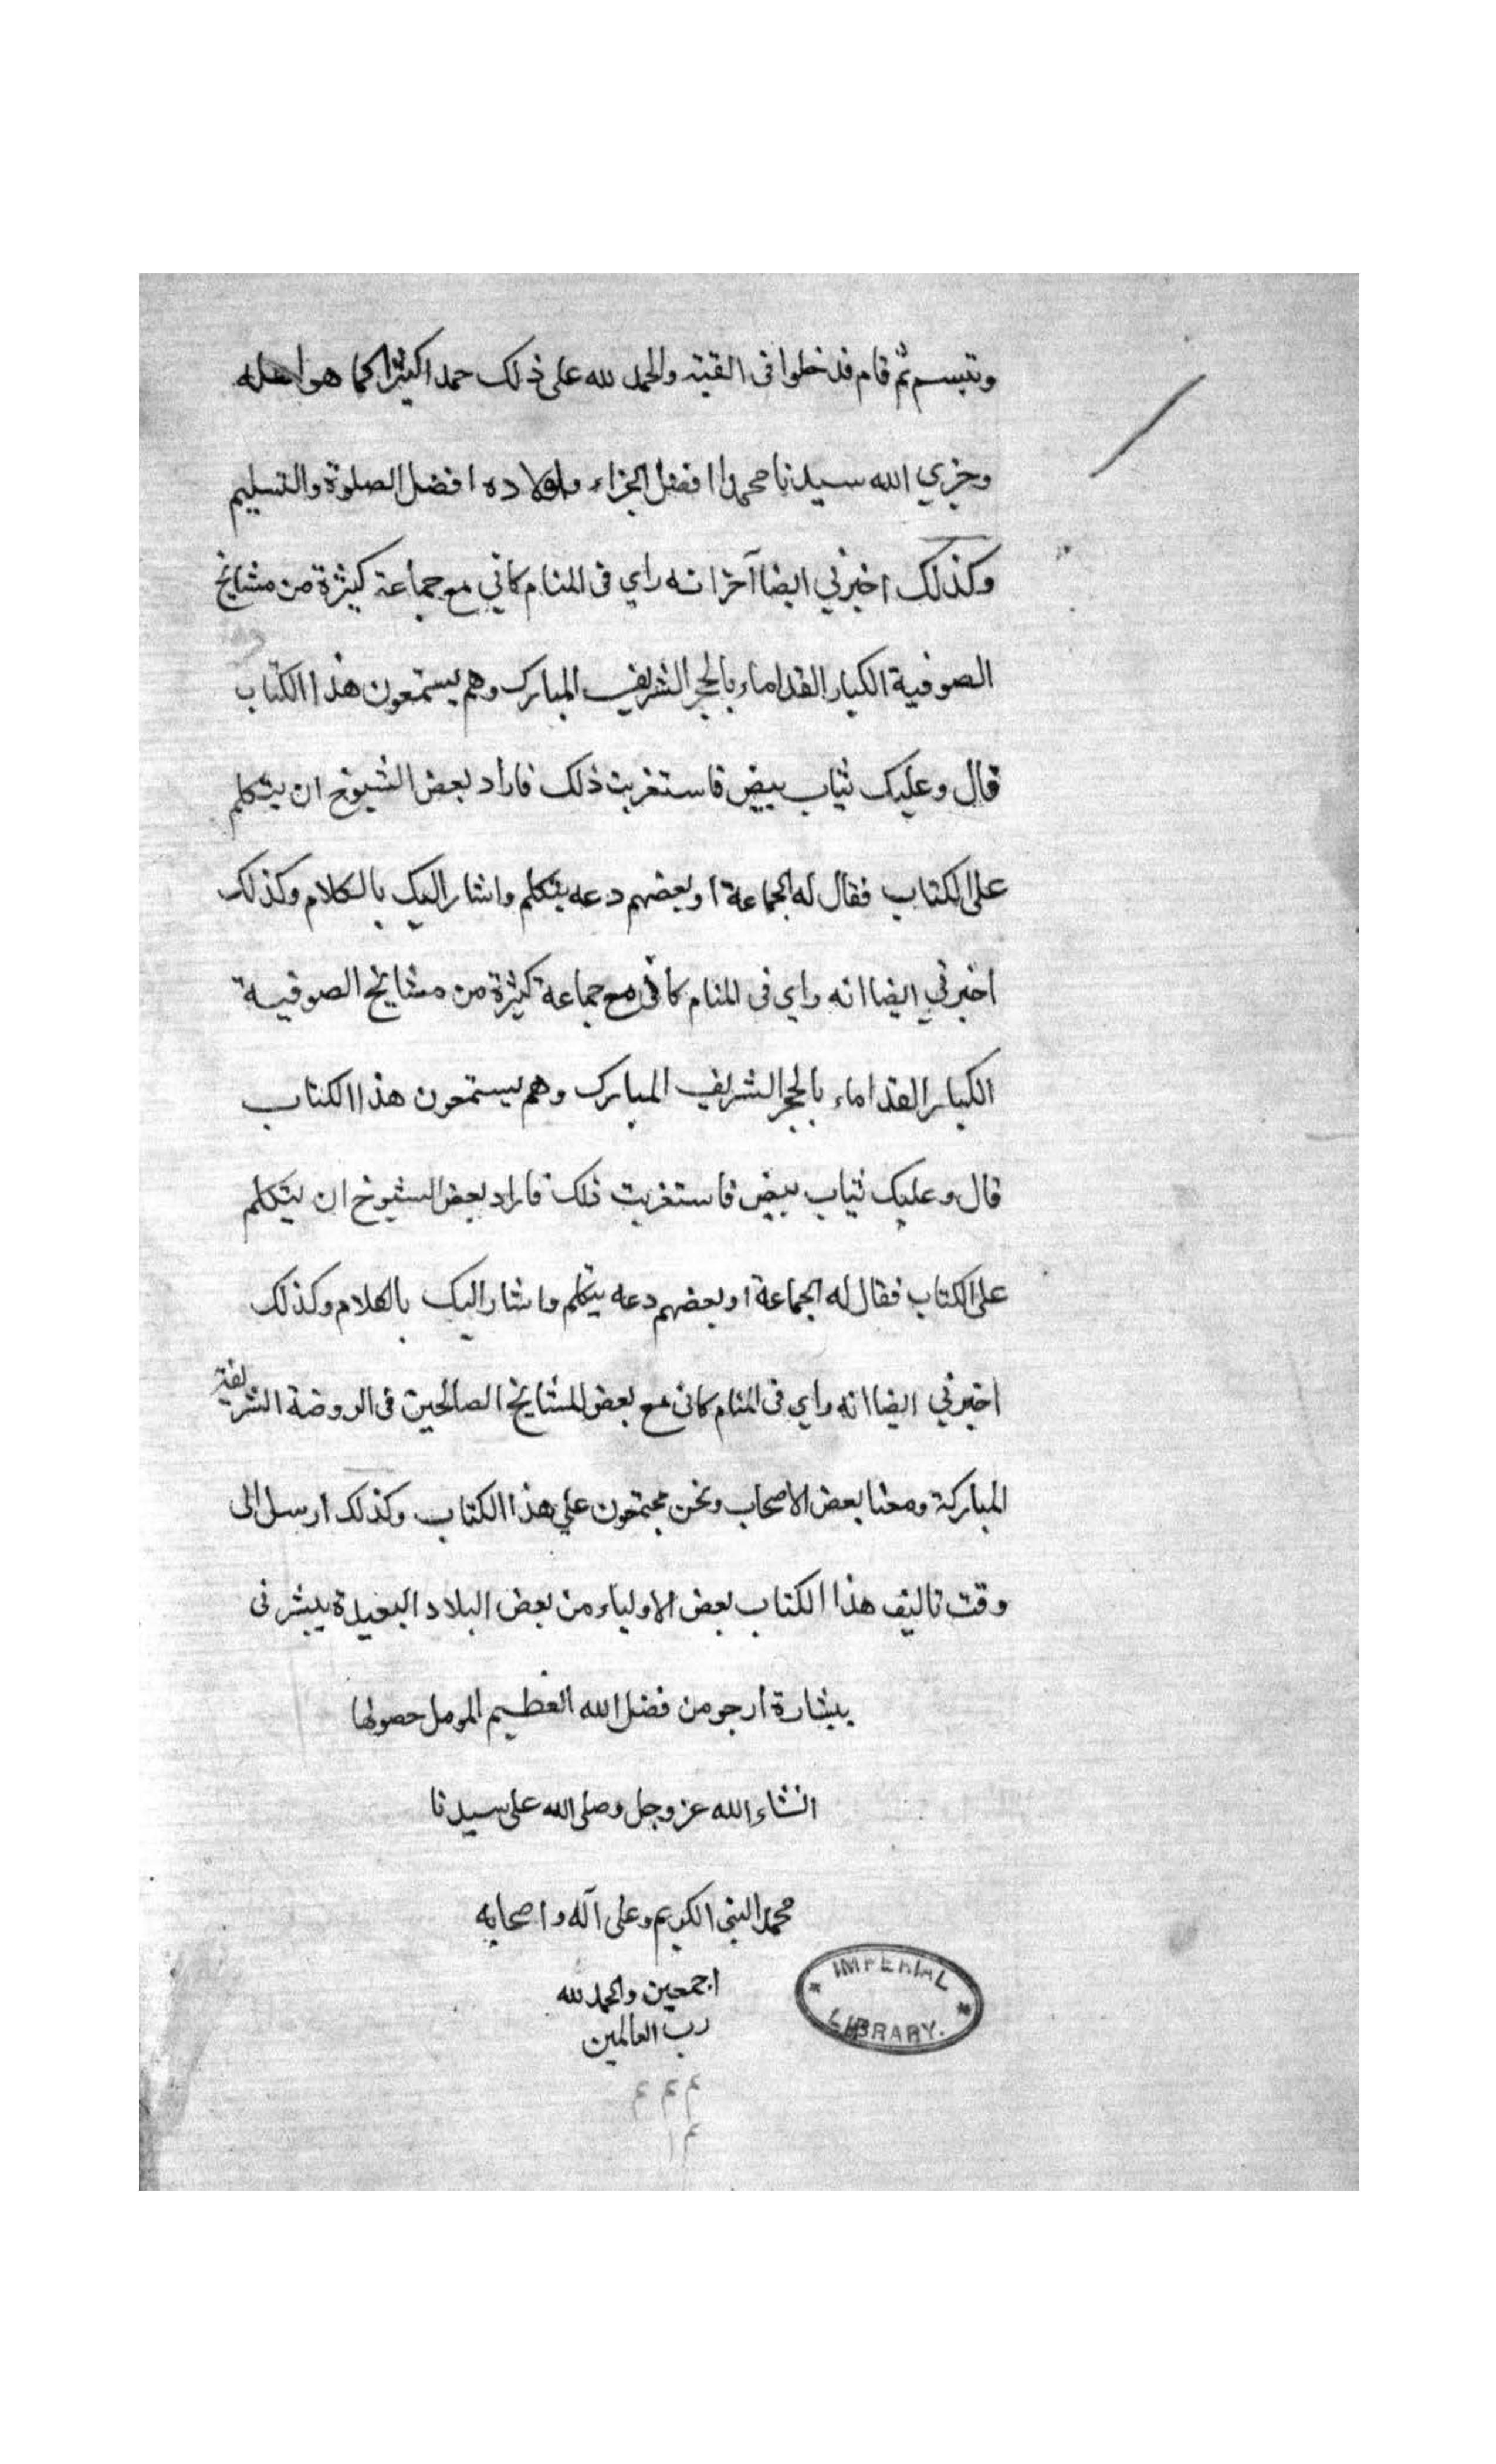 وتبسم ثم قام فدخلوا فى القبة والحمد لله على ذلك حمدا كثيرا كما هو اهله
وجزي الله سيدنا محمدا افضل الجزاء واولاده افضل الصلوة والتسليم
وكذلك اخبرني ايضا آخر انه راي فى المنام كاني مع جماعة كثيرة من مشايخ
الصوفية الكبار القداماء بالحجر الشريف المبارك وهم يستمعون هذا الكتاب
قال وعليك ثياب بيض فاستغربت ذلك فاراد بعض الشيوخ ان يتكلم
على الكتاب فقال له الجماعة او بعضهم دعه يتكلم واشار اليك بالكلام وكذلك
اخبرني ايضا انه راي فى المنام كانى مع جماعة كثيرة من مشايخ الصوفية
الكبار القداماء بالحجر الشريف المبارك وهم يستمعون هذا الكتاب
قال وعليك ثياب بيض فاستغربت ذلك فاراد بعض الشيوخ ان يتكلم
على الكتاب فقال له الجماعة او بعضهم دعه يتكلم واشار اليك بالكلام وكذلك
اخبرني ايضا انه راي فى المنام كانى مع بعض المشايخ الصالحين فى الروضة الشريفة
المباركة ومعنا بعض الاصحاب ونحن مجتمعون علي هذا الكتاب وكذلك ارسل الى
وقت تاليف هذا الكتاب بعض الاولياء من بعض البلاد البعيدة يبشرنى
ببشارة أرجو من فضل الله العظيم المومل حصولها
انشاء الله عز وجل وصلى الله على سيدنا
محمد النبى الكريم وعلى آله واصحابه
اجمعين والحمد لله
رب العالمين
IMPERIAL
LIBRARY.